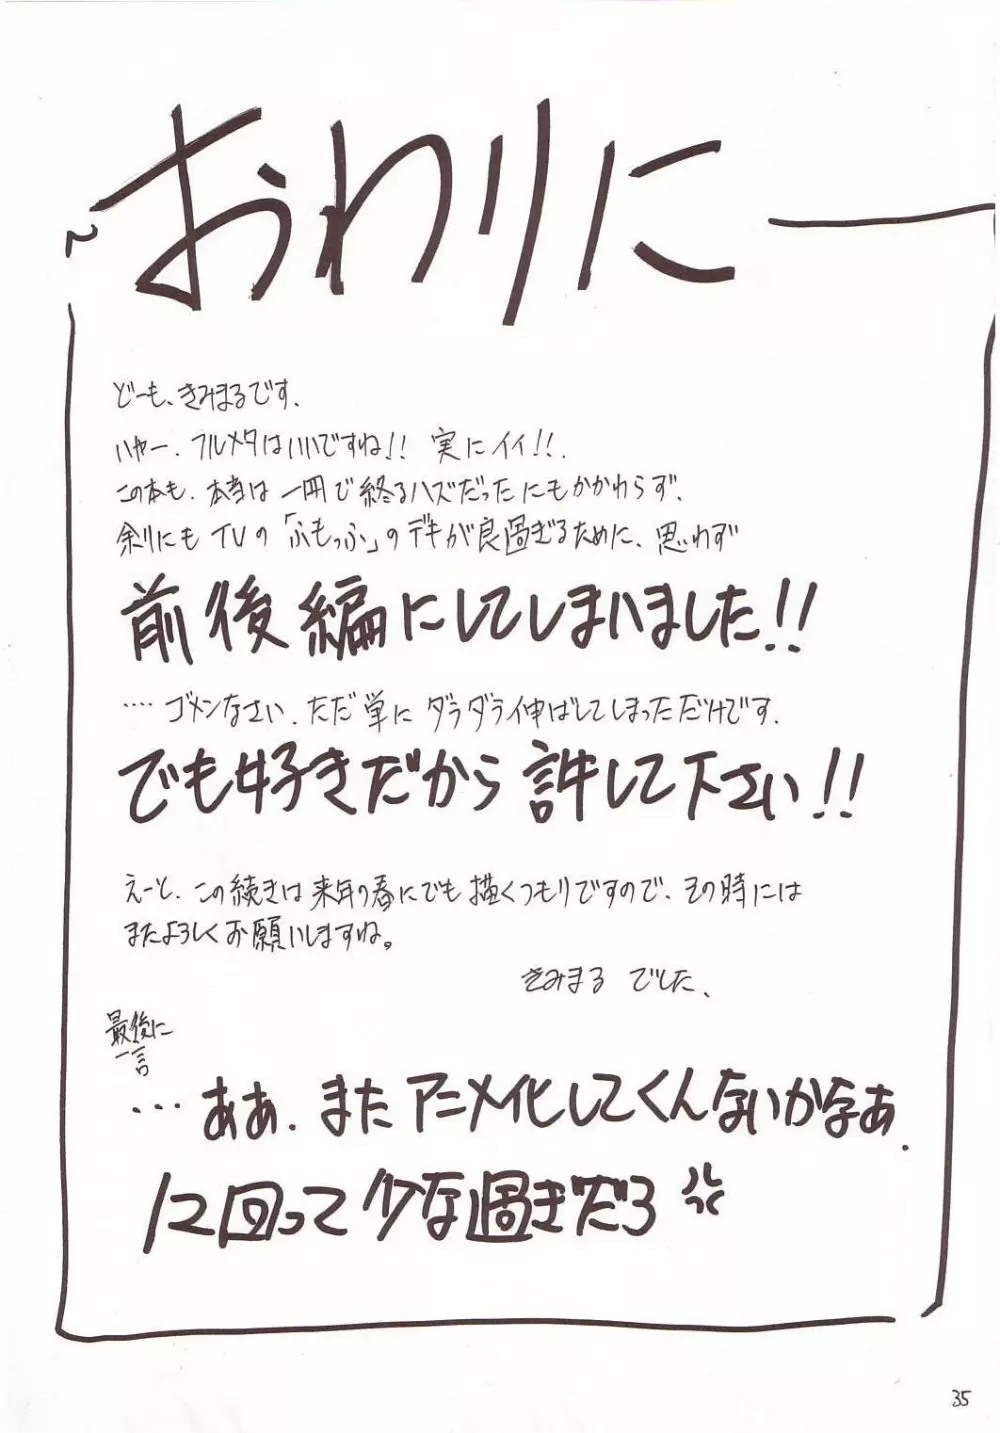 おわりに
どーも、きみまるです.
いやー. フルメタはいいですね!! 実にイイ!!.
この本も. 本当は一冊で終るハズだったにもかかわらず.
余りにもTVの「ふもっふ」のデキが良過ぎるために、思わず
前後編にしてしまいました!!
‥‥ゴメンなさい. ただ単にダラダラ伸ばしてしまっただけです.
でも好きだから許して下さい!!
えーと、この続きは来年の春にでも描くつもりですので、その時には
またよろしくお願いしますね。
きみまる でした、
最後に
一言
…ああ. またアニメ化してくんないかなぁ.
12回って少な過ぎだろ
35